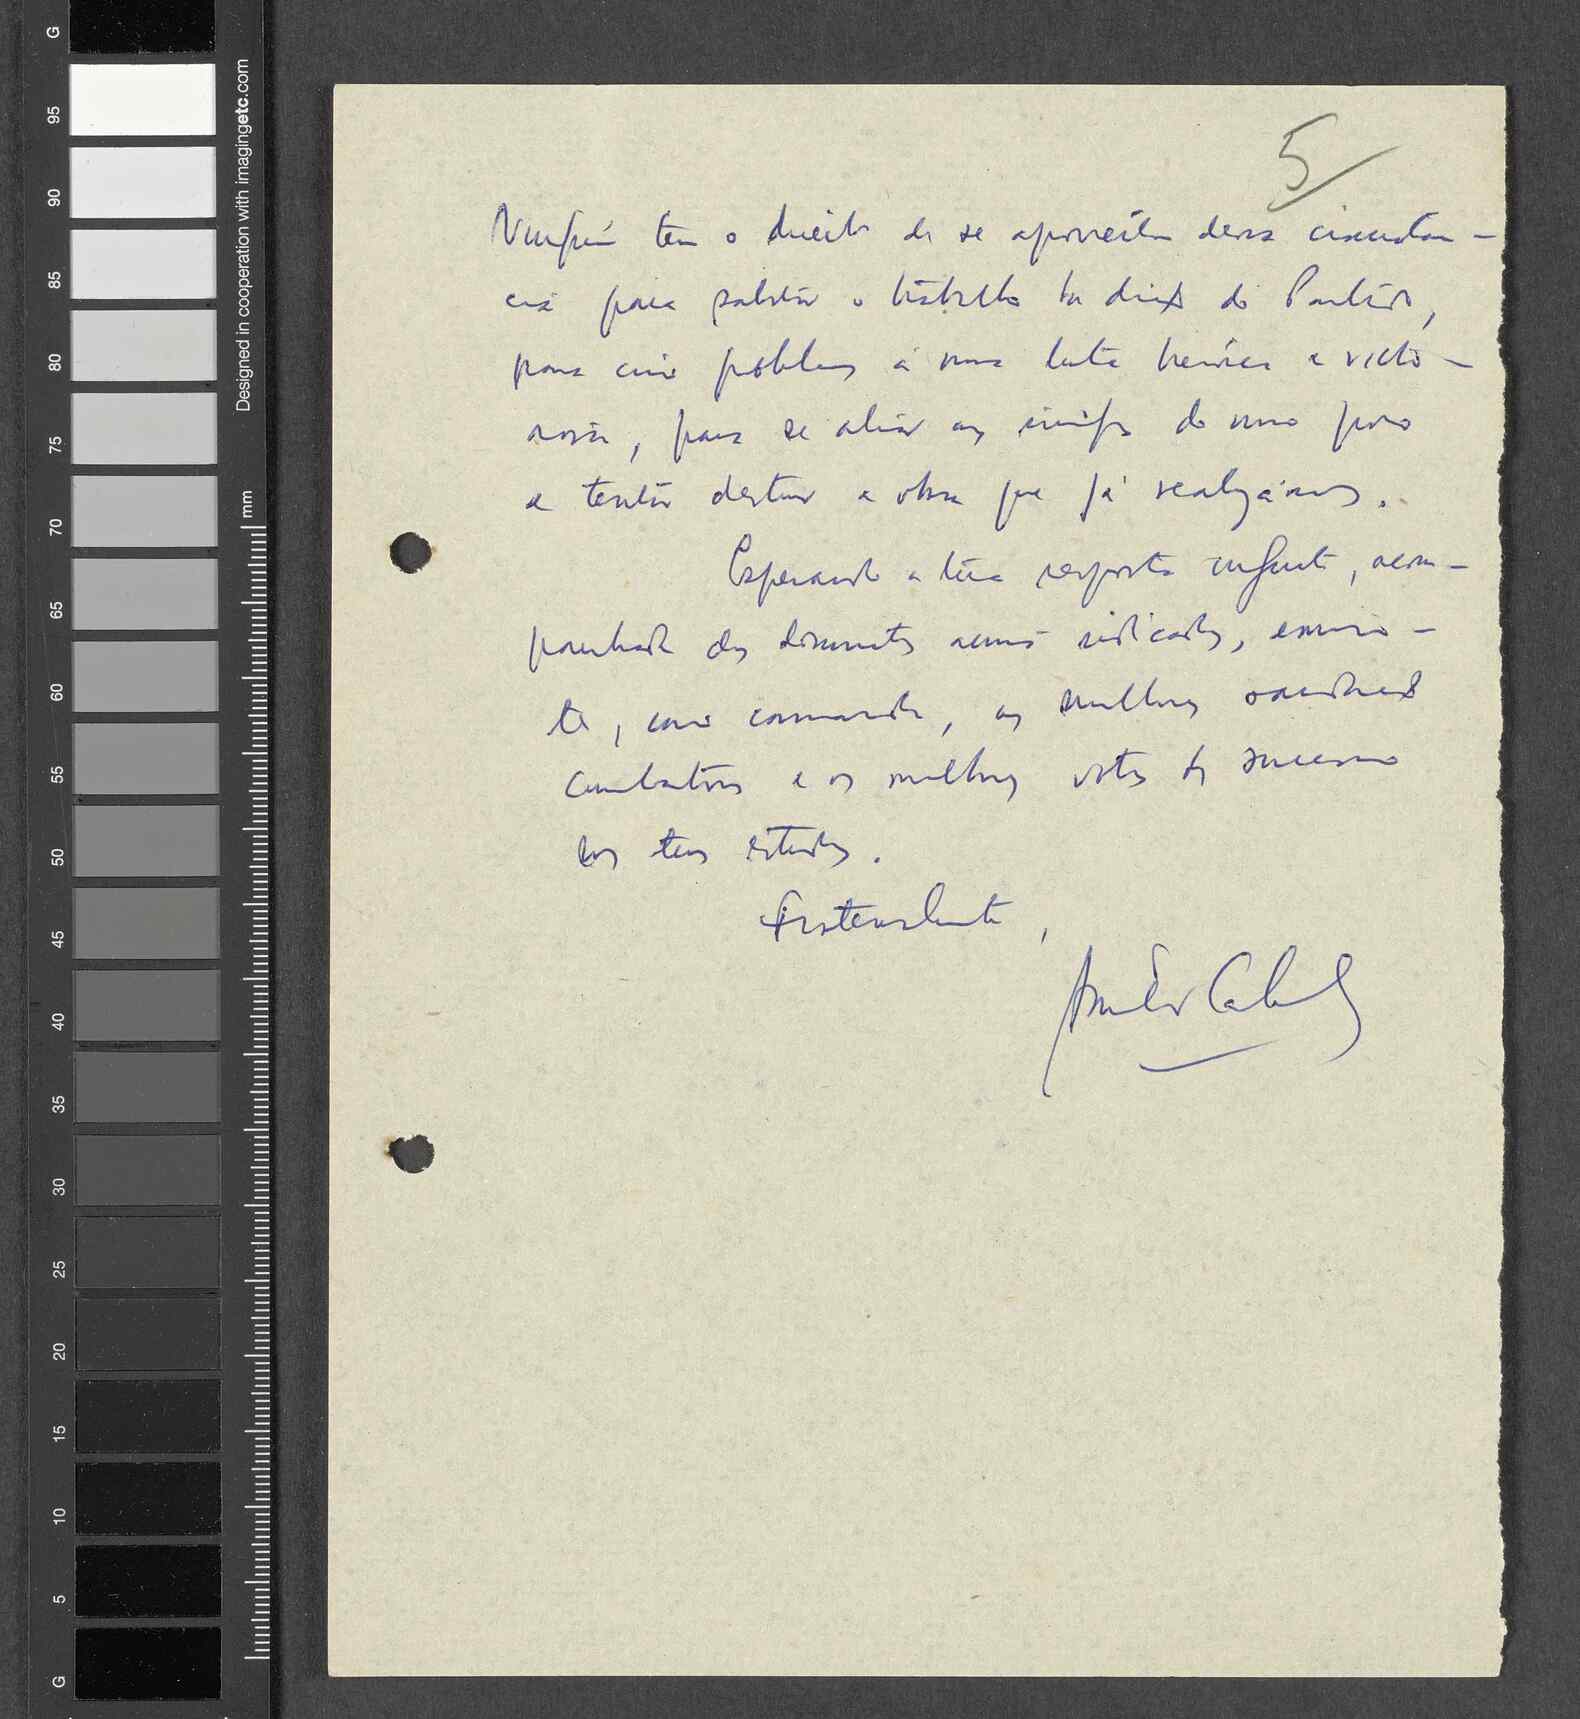 5
Ninguém tem o direito de se aproveitar dessa circunstân-
cia para sabotar o trabalho da direcção do Partido,
para criar problemas à nossa luta heróica e victo-
riosa, para se aliar aos inimigos do nosso povo
e tentar destruir a obra que já realizámos.
Esperando a tua resposta urgente, acom-
panhada dos documentos acima indicados, envio-
te, como camarada, as melhores saudações
combativas e os melhores votos de sucesso
nos teus estudos.
Fraternalmente,
Amílcar Cabral
G
95
90
85
80
75
70
65
60
55
50
45
40
35
30
25
20
15
10
5
G
Designed in cooperation with imagingetc.com
mm